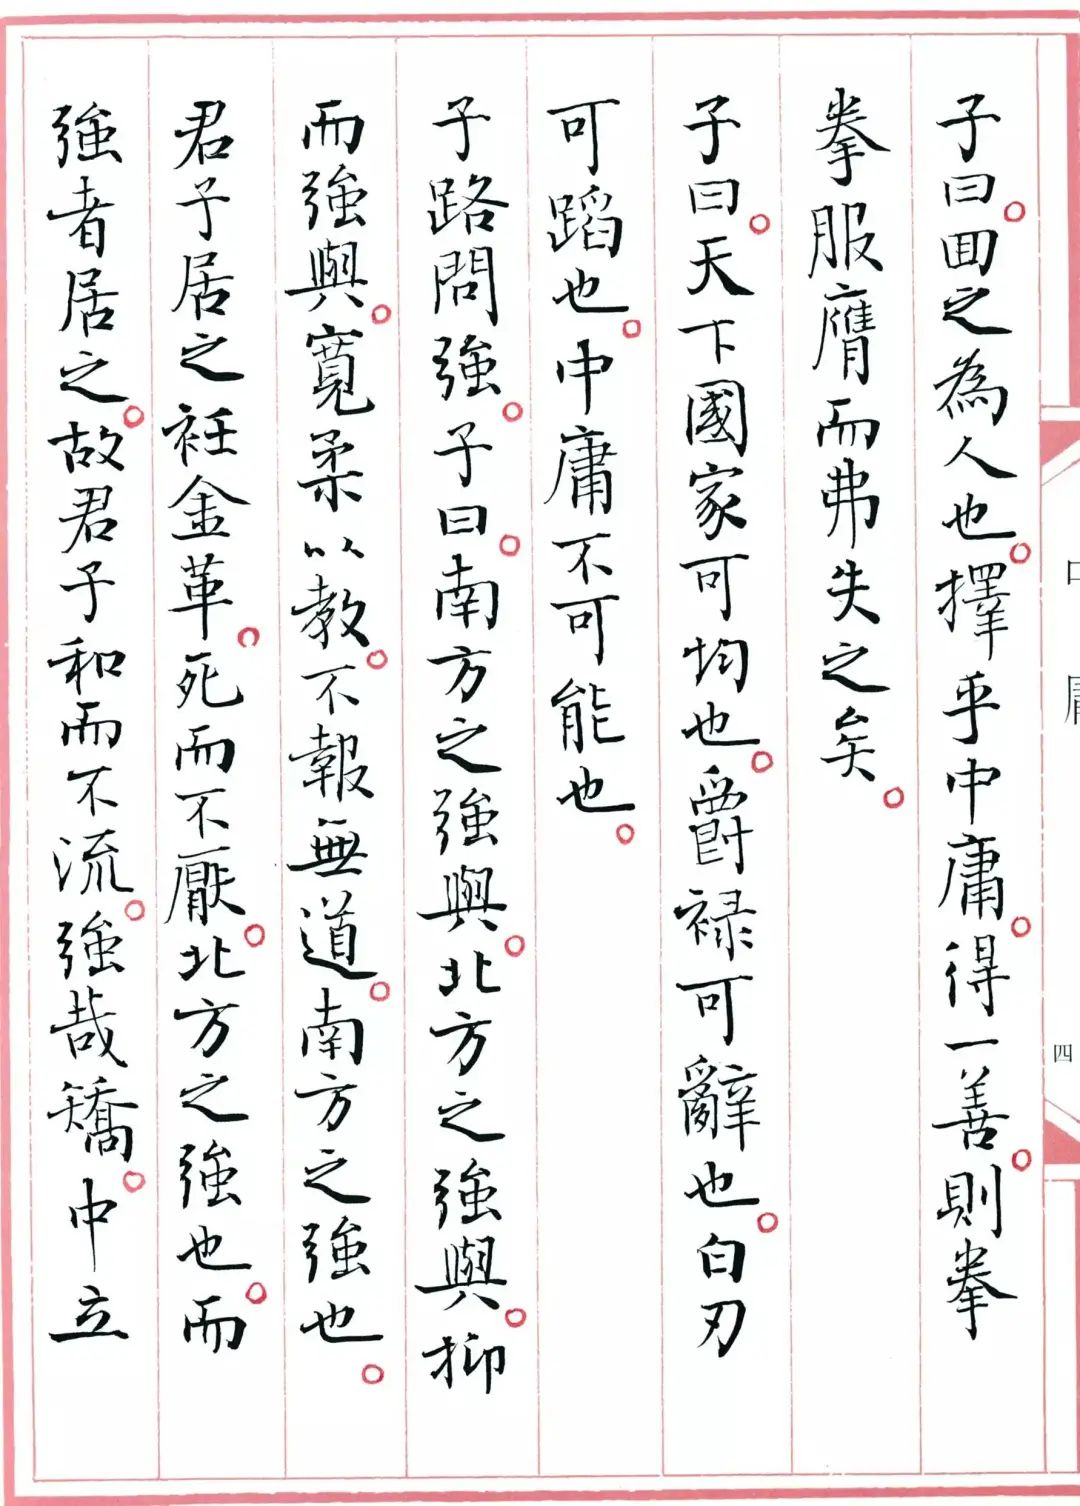 子曰。回之為人也。擇乎中庸。得一善。則拳
拳服膺而弗失之矣。
子曰。天下國家可均也。爵祿可辭也。白刃
可蹈也。中庸不可能也。
子路問強。子曰。南方之強與。北方之強與。抑
而強與。寬柔以教。不報無道。南方之強也。
君子居之衽金革。死而不厭。北方之強也。而
強者居之。故君子和而不流。強哉矯。中立
四